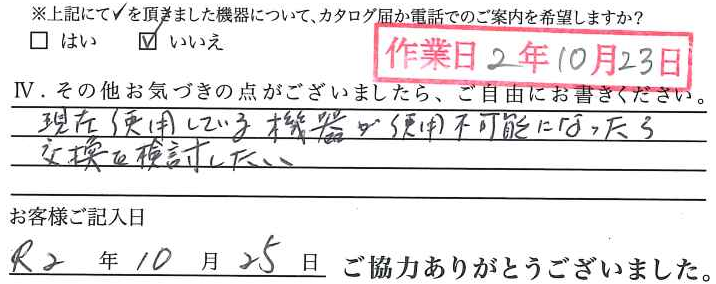 ※上記にて✓を頂きました機器について、カタログ届か電話でのご案内を希望しますか?
□ はい ☑ いいえ
作業日 2年10月23日
Ⅳ. その他お気づきの点がございましたら、ご自由にお書きください。
現在使用している機器が使用不可能になったら
交換を検討したい、
お客様ご記入日
R2 年 10 月 25 日 ご協力ありがとうございました。